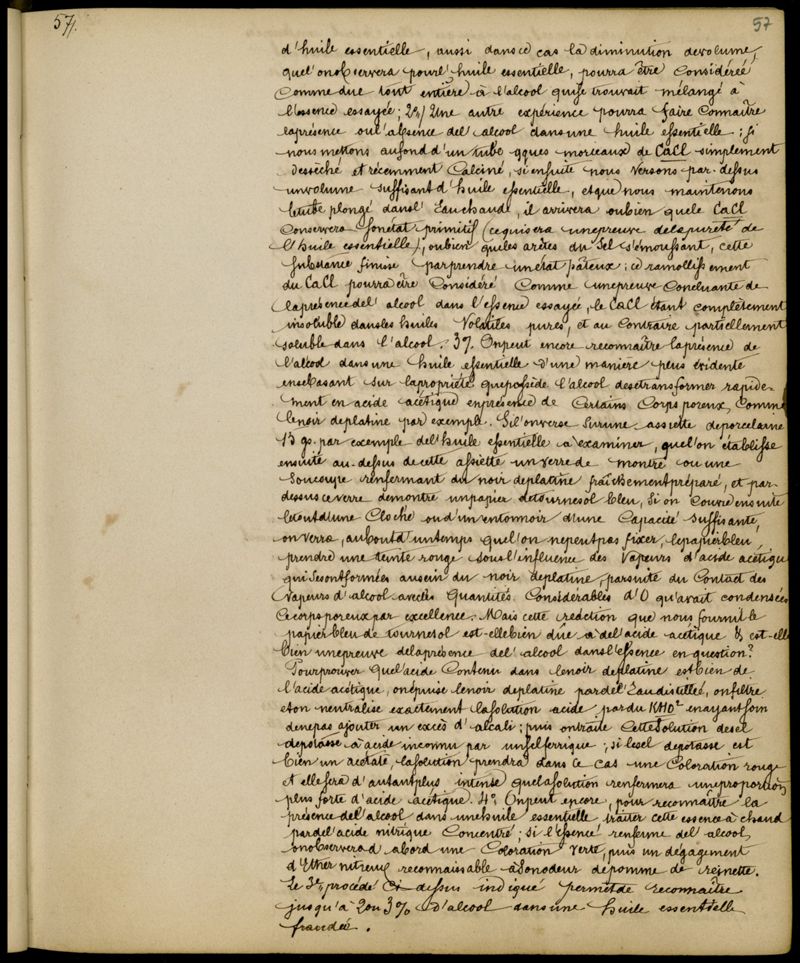 57/.
57
d'huile essentielle, aussi dans ce cas la diminution de volume,
que l'on observera pour l'huile essentielle, pourra être considérée
comme due tout entière à l'alcool qui se trouvait mélangé à
l'essence essayée; 2º/ Une autre expérience pourra faire connaître
la présence ou l'absence de l'alcool dans une huile essentielle; si
nous mettons au fond d'un tube qques morceaux de CaCl simplement
desséché et récemment calciné, si ensuite nous versons par-dessus
un volume suffisant d'huile essentielle, et que nous maintenons
le tube plongé dans l'eau chaude, il arrivera ou bien que le CaCl
conservera son état primitif (ce qui sera une preuve de la pureté de
l'huile essentielle), ou bien que les arêtes du sel s'émoussant, cette
substance finira par prendre un état pâteux; ce ramollissement
du CaCl pourra être considéré comme une preuve concluante de
la présence de l'alcool dans l'essence essayée, le CaCl étant complètement
insoluble dans les huiles volatiles pures, et au contraire partiellement
soluble dans l'alcool. 3º/. On peut encore reconnaître la présence de
l'alcool dans une huile essentielle d'une manière plus évidente
en se basant sur la propriété que possède l'alcool de se transformer rapide-
ment en acide acétique en présence de certains corps poreux, comme
le noir de platine par exemple. Si l'on verse sur une assiette de porcelaine
13 gs. par exemple de l'huile essentielle à examiner, que l'on établisse
ensuite au-dessus de cette assiette un verre de montre ou une
soucoupe renfermant du noir de platine fraîchement préparé, et par-
dessus ce verre de montre un papier de tournesol bleu, si on couvre ensuite
le tout d'une cloche ou d'un entonnoir d'une capacité suffisante,
on verra, au bout d'un temps que l'on ne peut pas fixer, le papier bleu
prendre une teinte rouge sous l'influence des vapeurs d'acide acétique
qui se sont formées au sein du noir de platine, par suite du contact des
vapeurs d'alcool avec les quantités considérables d'O qu'avait condensées
ce corps poreux par excellence. Mais cette réaction que nous fournit le
papier bleu de tournesol est-elle bien dûe à de l'acide acétique & est-elle
bien une preuve de la présence de l'alcool dans l'essence en question?
Pour prouver que l'acide contenu dans le noir de platine est bien de
l'acide acétique, on épuise le noir de platine par de l'eau distillée, on filtre
et on neutralise exactement la solution acide par du KHO² en ayant soin
de ne pas ajouter un excès d'alcali; puis on traite cette solution de sel
de potasse à acide inconnu par un sel ferrique; si le sel de potasse est
bien un acétate, la solution prendra dans ce cas une coloration rouge
et elle sera d'autant plus intense que la solution renfermera une proportion
plus forte d'acide acétique. 4º. On peut encore, pour reconnaître la
présence de l'alcool dans une huile essentielle, traiter cette essence à chaud
par de l'acide nitrique concentré; si l'essence renferme de l'alcool,
on observera d'abord une coloration verte, puis un dégagement
d'Ether nitreux reconnaissable à son odeur de pomme de reinette.
Le 3e, procédé ci-dessus indiqué permet de reconnaître
jusqu'à 2 ou 3% d'alcool dans une huile essentielle
fraudée.